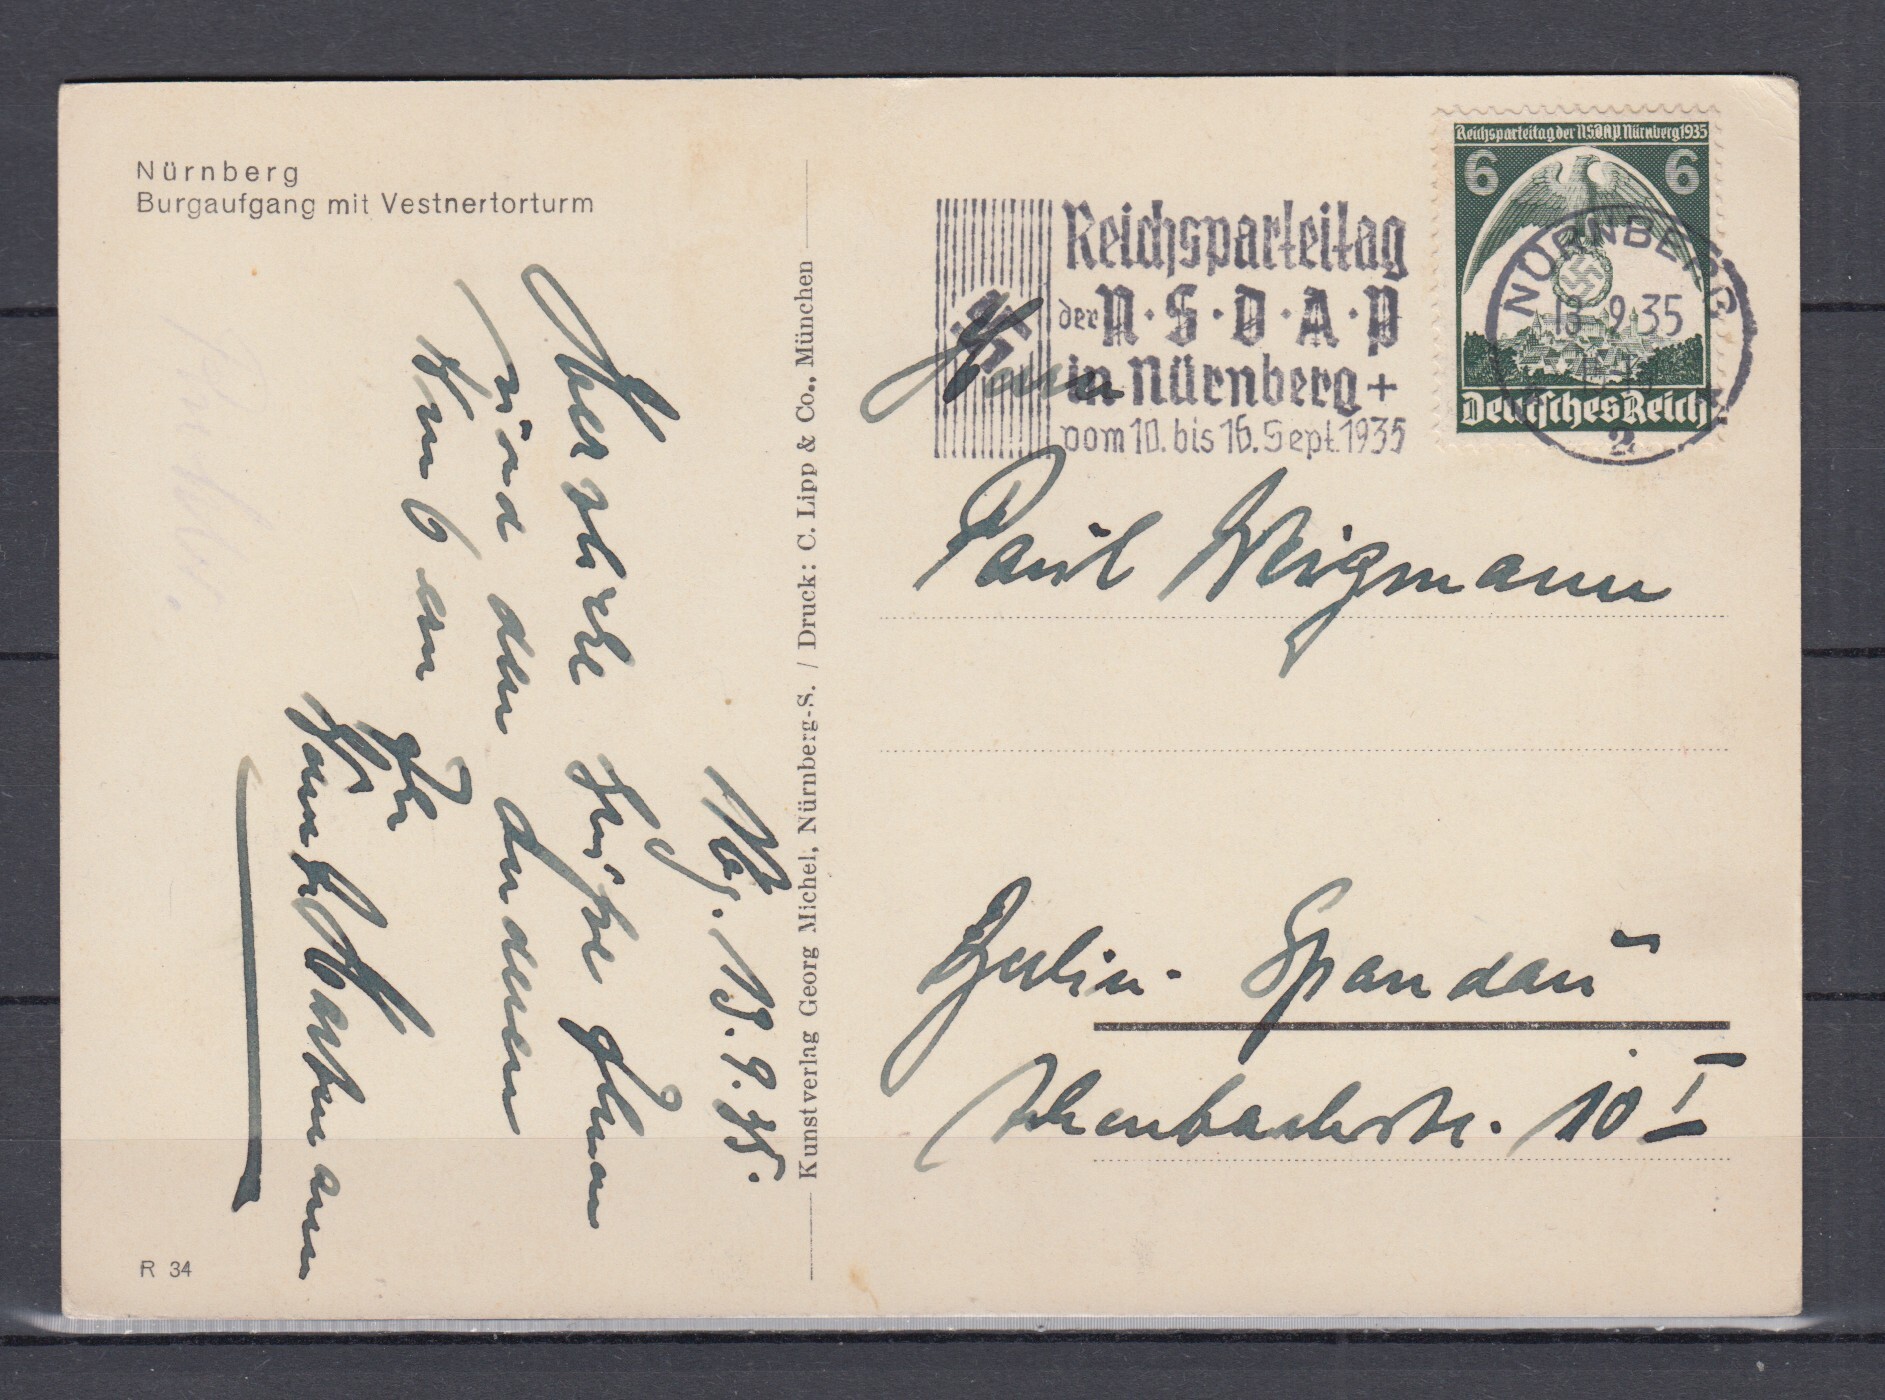 Nürnberg
Burgaufgang mit Vestnertorturm
Reichsparteitag der NSDAP Nürnberg 1935
6 6
Deutsches Reich
NÜRNBERG
13.9.35
2
Reichsparteitag
der N·S·D·A·P
in Nürnberg +
vom 10. bis 16. Sept. 1935
Herrn
Paul Wegmann
Berlin-Spandau
str. 10 I
Kunstverlag Georg Michel, Nürnberg-S. / Druck: C. Lipp & Co., München
Nbg. 13.9.35.
Herzliche Grüße Ihnen
und den anderen
von 6 an
Ihr
R 34